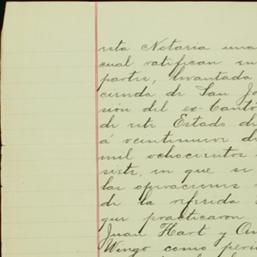 esta Notaria una
cual ratifican su
parte, levantada
cienda de San Jo
sión del ex-Cantó
de este Estado de
á veintinueve d
mil ochocientos
siete, en que se
las operaciones
de la referida
que practicaron
Juan Hart y
Wingo como peri